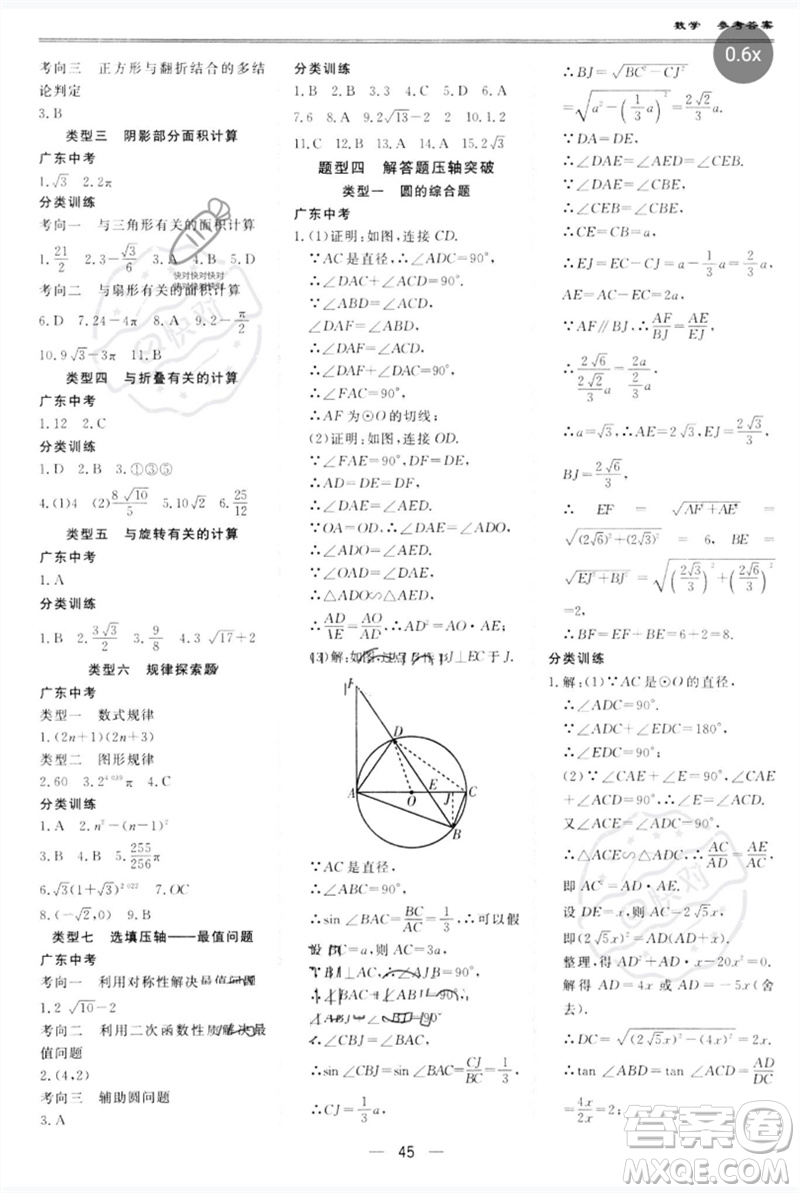 数学 参考答案
0.6x
考向三 正方形与翻折结合的多结
论判定
3.B
类型三 阴影部分面积计算
广东中考
1.√3 2.2π
分类训练
考向一 与三角形有关的面积计算
1.21/2 2.3-√3/6 3.A 4.B 5.D
考向二 与扇形有关的面积计算
6.D 7.24-4π 8.A 9.2-π/2
10.9√3-3π 11.B
类型四 与折叠有关的计算
广东中考
1.12 2.C
分类训练
1.D 2.B 3.①③⑤
4.(1)4 (2)8√10/5 5.10√2 6.25/12
类型五 与旋转有关的计算
广东中考
1.A
分类训练
1.B 2.3√3/2 3.9/8 4.3√17+2
类型六 规律探索题
广东中考
类型一 数式规律
1.(2n+1)(2n+3)
类型二 图形规律
2.60 3.2^4 039π 4.C
分类训练
1.A 2.n²-(n-1)²
3.B 4.B 5.255/256π
6.√3(1+√3)^2 022 7.OC
8.(-√2,0) 9.B
类型七 选填压轴——最值问题
广东中考
考向一 利用对称性解决最值问题
1.2√10-2
考向二 利用二次函数性质解决最
值问题
2.(4,2)
考向三 辅助圆问题
3.A
分类训练
1.B 2.B 3.3 4.C 5.C
7.6 8.A 9.2√13-2 10.4
11.C 12.C 13.A 14.A 15.2√3
题型四 解答题压轴突破
类型一 圆的综合题
广东中考
1.(1)证明:如图,连接 CD.
∵AC是直径,∴∠ADC=90°,
∴∠DAC+∠ACD=90°.
∵∠ABD=∠ACD,
∠DAF=∠ABD,
∴∠DAF=∠ACD.
∴∠DAF+∠DAC=90°,
∴∠FAC=90°,
∴AF为⊙O的切线;
(2)证明:如图,连接 OD.
∵∠FAE=90°,AD=DF,
∴AD=DE=DF,
∴∠DAE=∠AED.
∵OA=OD,∴∠OAD=∠ADO,
∴∠ADO=∠AED.
∵∠OAD=∠DAE,
∴△ADO∽△AED,
∴AD/AE=AO/AD,∴AD²=AO·AE;
J⊥EC于J.
F
D
A
O
E
J
C
B
∵AC是直径,
∴∠ABC=90°,
∴sin∠BAC=BC/AC=1/3,∴可以假
设BC=a,则AC=3a,
∴∠CBJ=∠BAC,
∴sin∠CBJ=sin∠BAC=CJ/BC=1/3,
∴CJ=1/3a,
∴BJ=√(BC²-CJ²)=
√(a²-(1/3a)²)=2√2/3a.
∵DA=DE,
∴∠DAE=∠DEA.
∵∠DAE=∠CBE,
∠DEA=∠CEB,
∴∠CEB=∠CBE,
∴CE=CB=a,
∴EJ=EC-CJ=a-1/3a=2/3a.
∵AF∥BJ,∴AF/BJ=AE/EJ,
∴2√6/(2√2/3a)=2a/(2/3a),
∴a=√3,∴AE=2√3,EJ=2√3/3,
BJ=2√6/3,
∴EF=√(AF²+AE²)=
√((2√6)²+(2√3)²)=6,BE=
√(EJ²+BJ²)=√((2√3/3)²+(2√6/3)²)
=2,
∴BF=EF+BE=6+2=8.
分类训练
1.解:(1)∵AC是⊙O的直径,
∴∠ADC=90°.
∵∠ADC+∠EDC=180°,
∴∠EDC=90°;
(2)∵∠CAE+∠E=90°,∠CAE
+∠ACD=90°,∴∠E=∠ACD.
又∠CAE=∠CAE,
∴△ACE∽△ADC,∴AC/AD=AE/AC,
即AC²=AD·AE.
设DE=x,则AC=2√5x,
即(2√5x)²=AD(AD+x),
整理,得AD²+AD·x-20x²=0.
解得AD=4x或AD=-5x(舍
去).
∴DC=√((2√5x)²-(4x)²)=2x.
∴tan∠ABD=tan∠ACD=AD/DC=
4x/2x=2;
45
快对快对快对
快对快对快对
快对
快对
答案圈
MXQE.COM